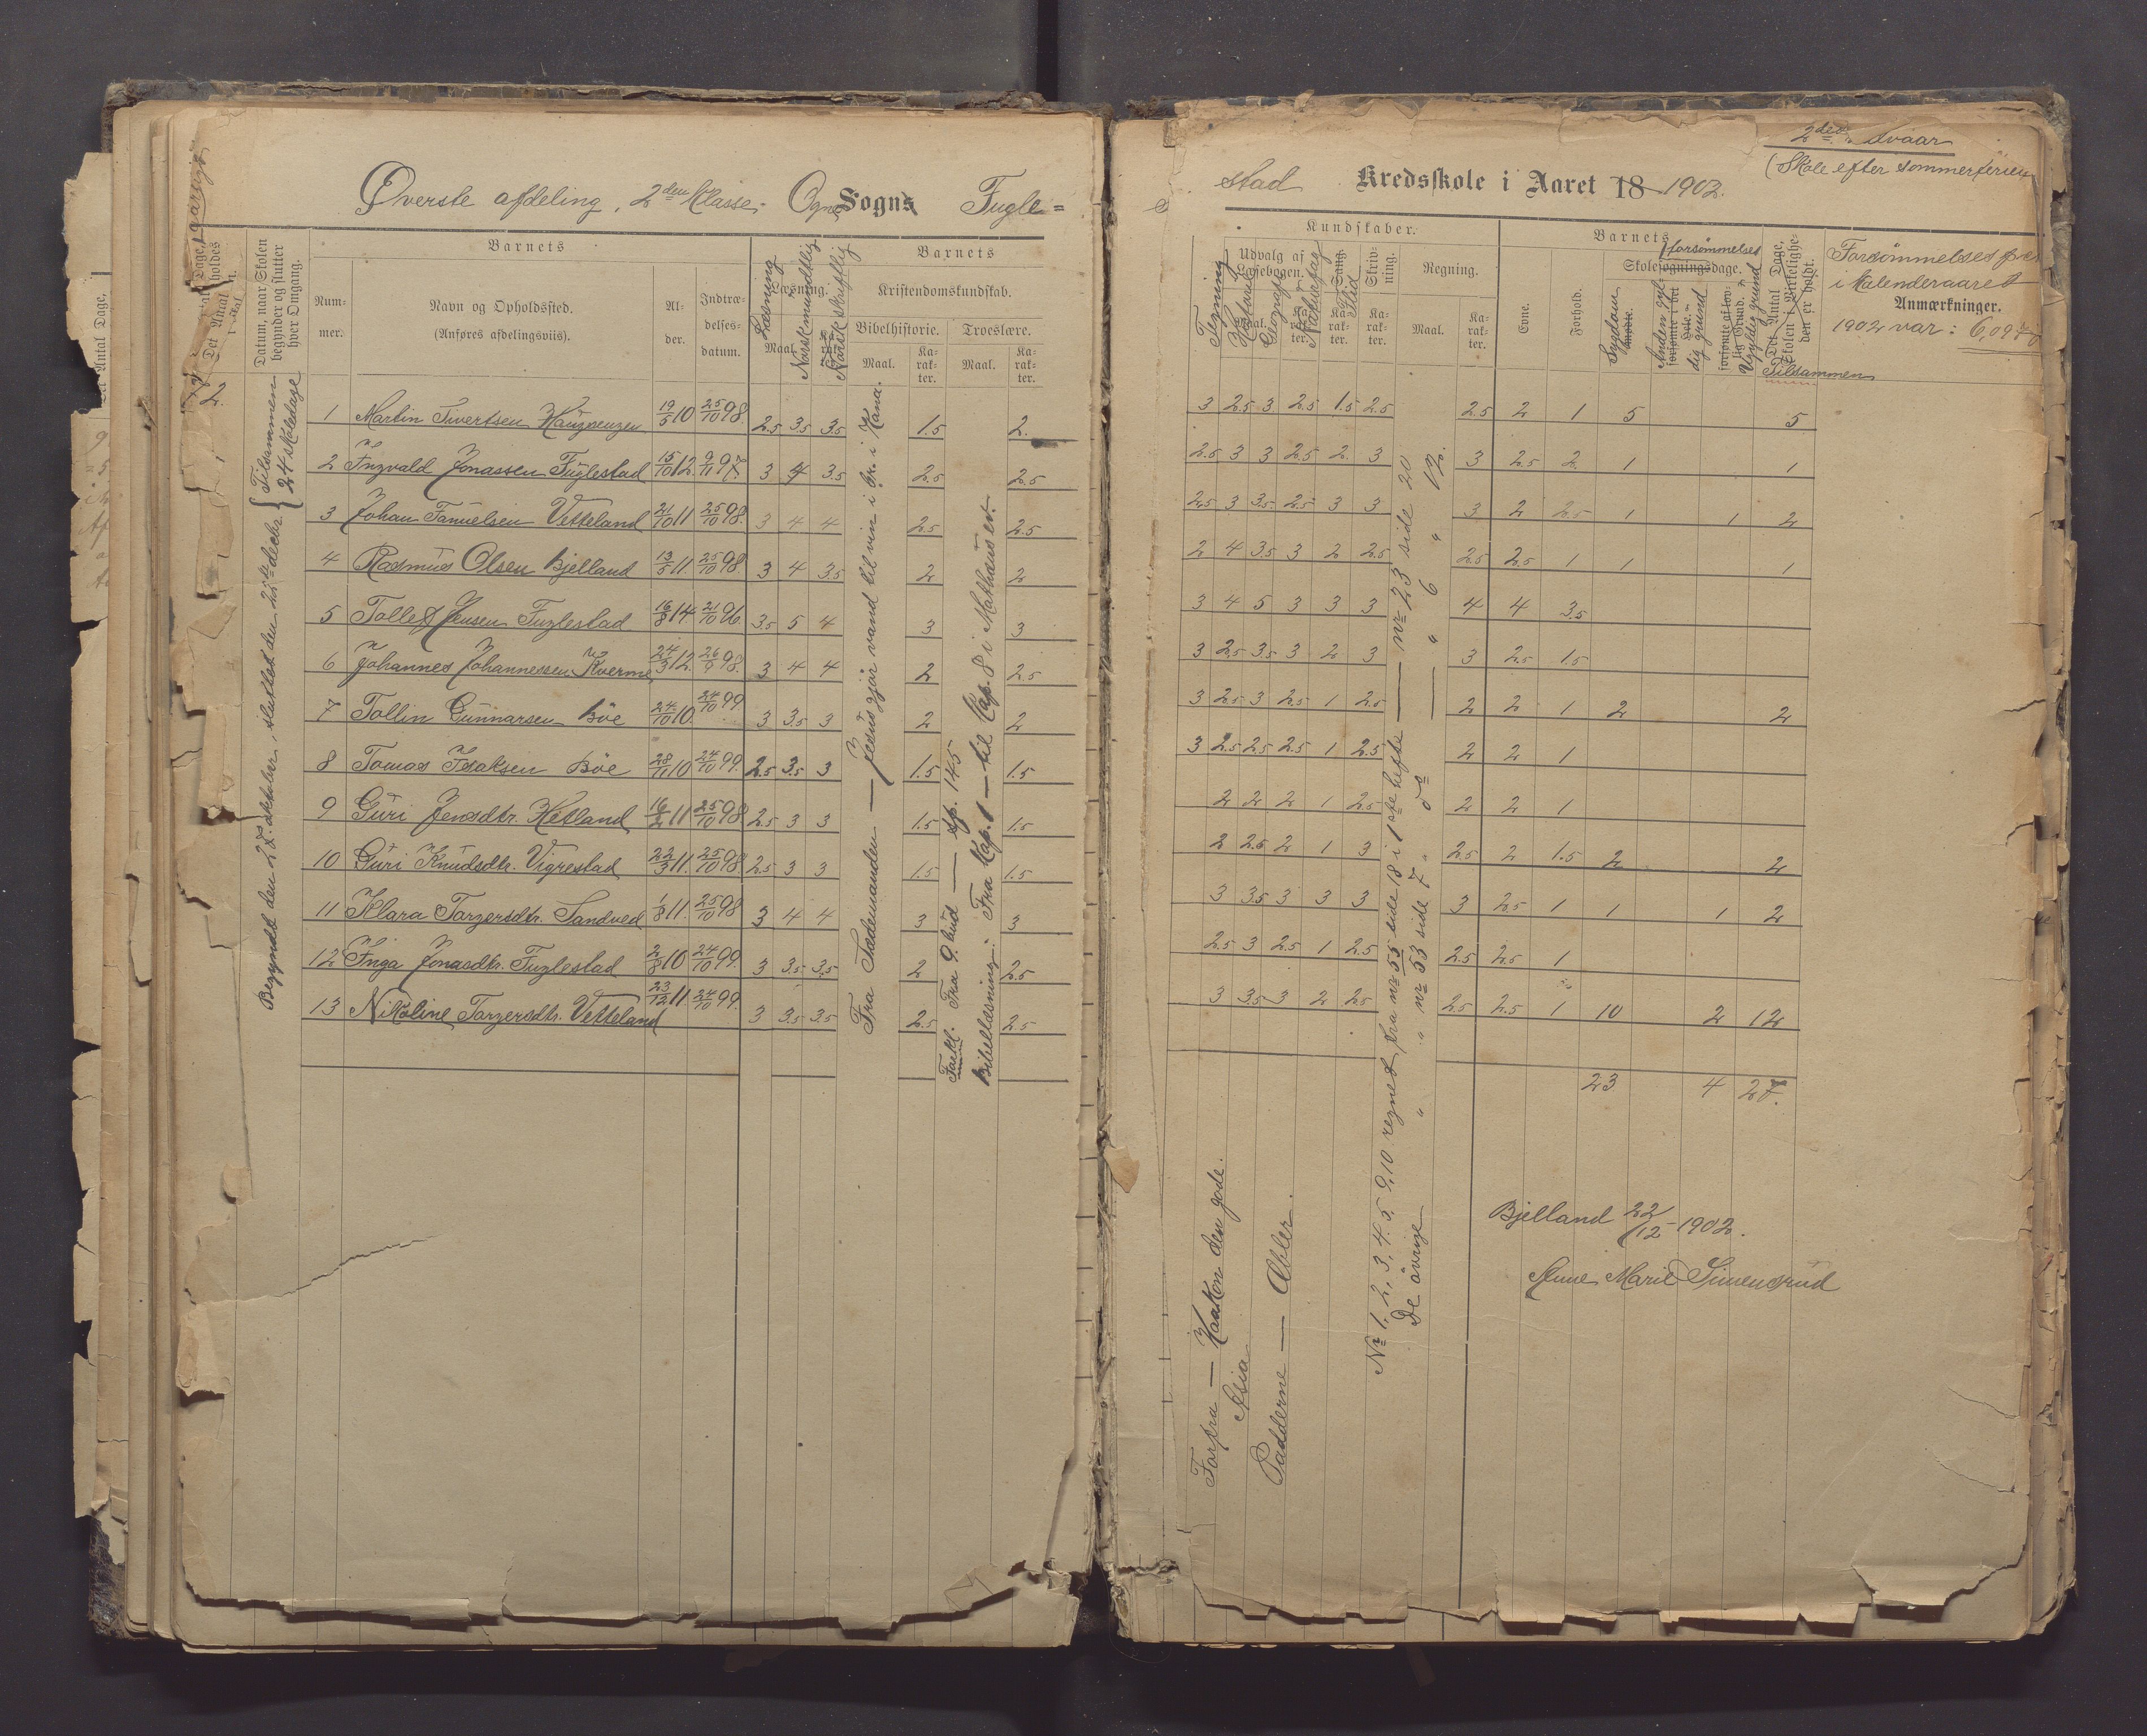 Øverste afdeling, 2den Klasse. Ogne Sogns Fugle=
Det Antal Dage,
Datum, naar Skolen begynder og slutter hver Omgang.
Nummer.
Barnets
Navn og Opholdssted.
(Anføres afdelingsviis).
Alder.
Indtrædelsesdatum.
Læsning
Læsning.
Maal.
Norsk mundtlig
Norsk skriftlig
Barnets
Kristendomskundskab.
Bibelhistorie.
Troeslære.
Maal.
Karakter.
Maal.
Karakter.
Begyndt den 27. oktober, sluttet den 20de decbr. { Tilsammen 24 skoledage
1 Martin Sivertsen Haugjengen 19/5 10 25/10 98. 2.5 3.5 3.5 1.5 2.
2 Ingvald Jonassen Fuglestad 15/10 12. 9/11 97. 3 4 3.5 2.5 2.5
3 Johan Samuelsen Vetteland 21/10 11 25/10 98. 3 4 4 2.5 2.5
4 Rasmus Olsen Bjelland 13/5 11 25/10 98. 3 4 3.5 2 2
5 Tollef Jensen Fuglestad 16/8 14 21/10 96. 3.5 5 4 3 3
6 Johannes Johannessen Kverme 24/3 12. 26/9 98. 3 4 4 2 2.5
7 Tollin Gunnarsen Böe 24/10 10. 24/10 99. 3 3.5 3 2 2
8 Tomas Isaksen Böe 28/11 10 24/10 99. 2.5 3.5 3 1.5 1.5
9 Guri Jensdtr. Hetland 16/2 11 25/10 98 2.5 3 3 1.5 1.5
10 Guri Knudsdtr. Vigrestad 22/3 11. 25/10 98. 2.5 3 3 1.5 1.5
11 Klara Torgersdtr. Sandved 1/8 11. 25/10 98 3 4 4 3 3
12 Inga Jonasdtr. Fuglestad 2/8 10 24/10 99. 3 3.5 3.5 2 2.5
13 Nikoline Torgersdtr. Vetteland 23/12 11 24/10 99. 3 3.5 3.5 2.5 2.5
Fra Sædemanden — Jesus gjør vand til vin i br. i Kana.
Forkl. Fra 9. bud — sp. 145
Bibellæsning: Fra Kap. 1 — til Cap. 8 i Mathæus ev.
2den Kvaar
(Skole efter sommerferien
stad Kredsskole i Aaret 18 1902.
Kundskaber.
Tegning
Udvalg af Læsebogen.
Historie
Geografi
Naturfag
Sang.
Flid
Skrivning.
Karakter.
Regning.
Maal.
Karakter.
Barnets
Evne.
Forhold.
forsømmelses
Skolesøgningsdage.
Sygdom
Anden gyldig grund
Ugyldig grund
Det Antal Dage, Skolen i Virkeligheden er holdt.
Tilsammen
Forsømmelsespro.
i Kalenderaaret
Anmærkninger.
1902 var: 6,09%
3 2.5 3 2.5 1.5 2.5 2.5 2 1 5 5
2.5 3 3 2.5 2 3 3 2.5 2 1 1
2.5 3 3.5 2.5 3 3 3 2 2.5 1 1 2
2 4 3.5 3 2 2.5 2.5 2.5 1 1 1
3 4 5 3 3 3 4 4 3.5
3 2.5 3.5 3 2 3 3 2.5 1.5
3 2.5 3 2.5 1 2.5 2 2 1 2 2
3 2.5 2.5 2.5 1 2.5 2 2 1
2 2 2 1 2.5 2 2 1
2 2.5 2 1 3 2.5 2 1.5 2 2
3 3.5 3 3 3 3 2.5 1 1 1 2
2.5 3 2.5 1 2.5 2.5 2.5 1
3 3.5 3 2 2.5 2.5 2.5 1 10 2 12
23 4 27.
Forfra — Haakon den gode.
Asia
Padderne — Æbler.
Nr 1, 2, 3, 4, 5, 9, 10 regnet fra nr 55 side 18 i 1ste hefte — nr 23 side 20
De øvrige " " nr 53 side 7 " 5te — " 6 " 12.
Bjelland 22/12 - 1902.
Anne Marie Simensrud